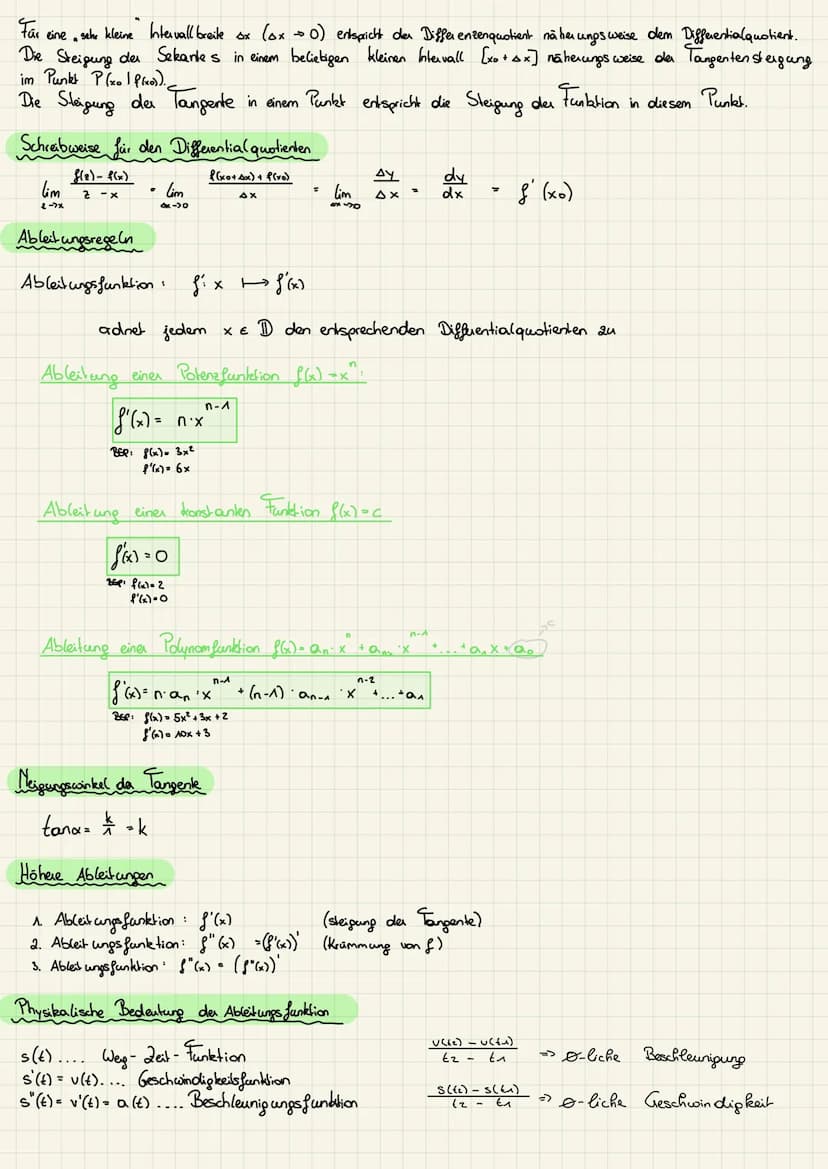 Für eine „sehr kleine" Intervallbreite Δx (Δx → 0) entspricht der Differenzenquotient näherungsweise dem Differentialquotient.
Die Steigung der Sekante s in einem beliebigen kleinen Intervall [x₀ + Δx] näherungsweise der Tangentensteigung
im Punkt P(x₀ | f(x₀)).
Die Steigung der Tangente in einem Punkt entspricht die Steigung der Funktion in diesem Punkt.
Schreibweise für den Differentialquotienten
lim z→x (f(z) - f(x))/(z - x) = lim Δx→0 (f(x₀+Δx) + f(x₀))/Δx = lim Δx→0 Δy/Δx = dy/dx = f'(x₀)
Ableitungsregeln
Ableitungsfunktion: f': x ↦ f'(x)
ordnet jedem x ∈ 𝔻 den entsprechenden Differentialquotienten zu
Ableitung einer Potenzfunktion f(x) = xⁿ:
f'(x) = n·xⁿ⁻¹
BSP: f(x) = 3x²
f'(x) = 6x
Ableitung einer konstanten Funktion f(x) = c
f'(x) = 0
BSP: f(x) = 2
f'(x) = 0
Ableitung einer Polynomfunktion f(x) = aₙ·xⁿ + aₙ₋₁·xⁿ⁻¹ + ... + a₁x + a₀ → c
f'(x) = n·aₙ·xⁿ⁻¹ + (n-1)·aₙ₋₁·xⁿ⁻² + ... + a₁
BSP: f(x) = 5x² + 3x + 2
f'(x) = 10x + 3
Neigungswinkel der Tangente
tanα = k/1 = k
Höhere Ableitungen
1. Ableitungsfunktion: f'(x) (Steigung der Tangente)
2. Ableitungsfunktion: f''(x) = (f'(x))' (Krümmung von f)
3. Ableitungsfunktion: f'''(x) = (f''(x))'
Physikalische Bedeutung der Ableitungsfunktion
s(t) .... Weg-Zeit-Funktion
s'(t) = v(t) .... Geschwindigkeitsfunktion
s''(t) = v'(t) = a(t) .... Beschleunigungsfunktion
(v(t₂) - v(t₁))/(t₂ - t₁) => ø-liche Beschleunigung
(s(t₂) - s(t₁))/(t₂ - t₁) => ø-liche Geschwindigkeit